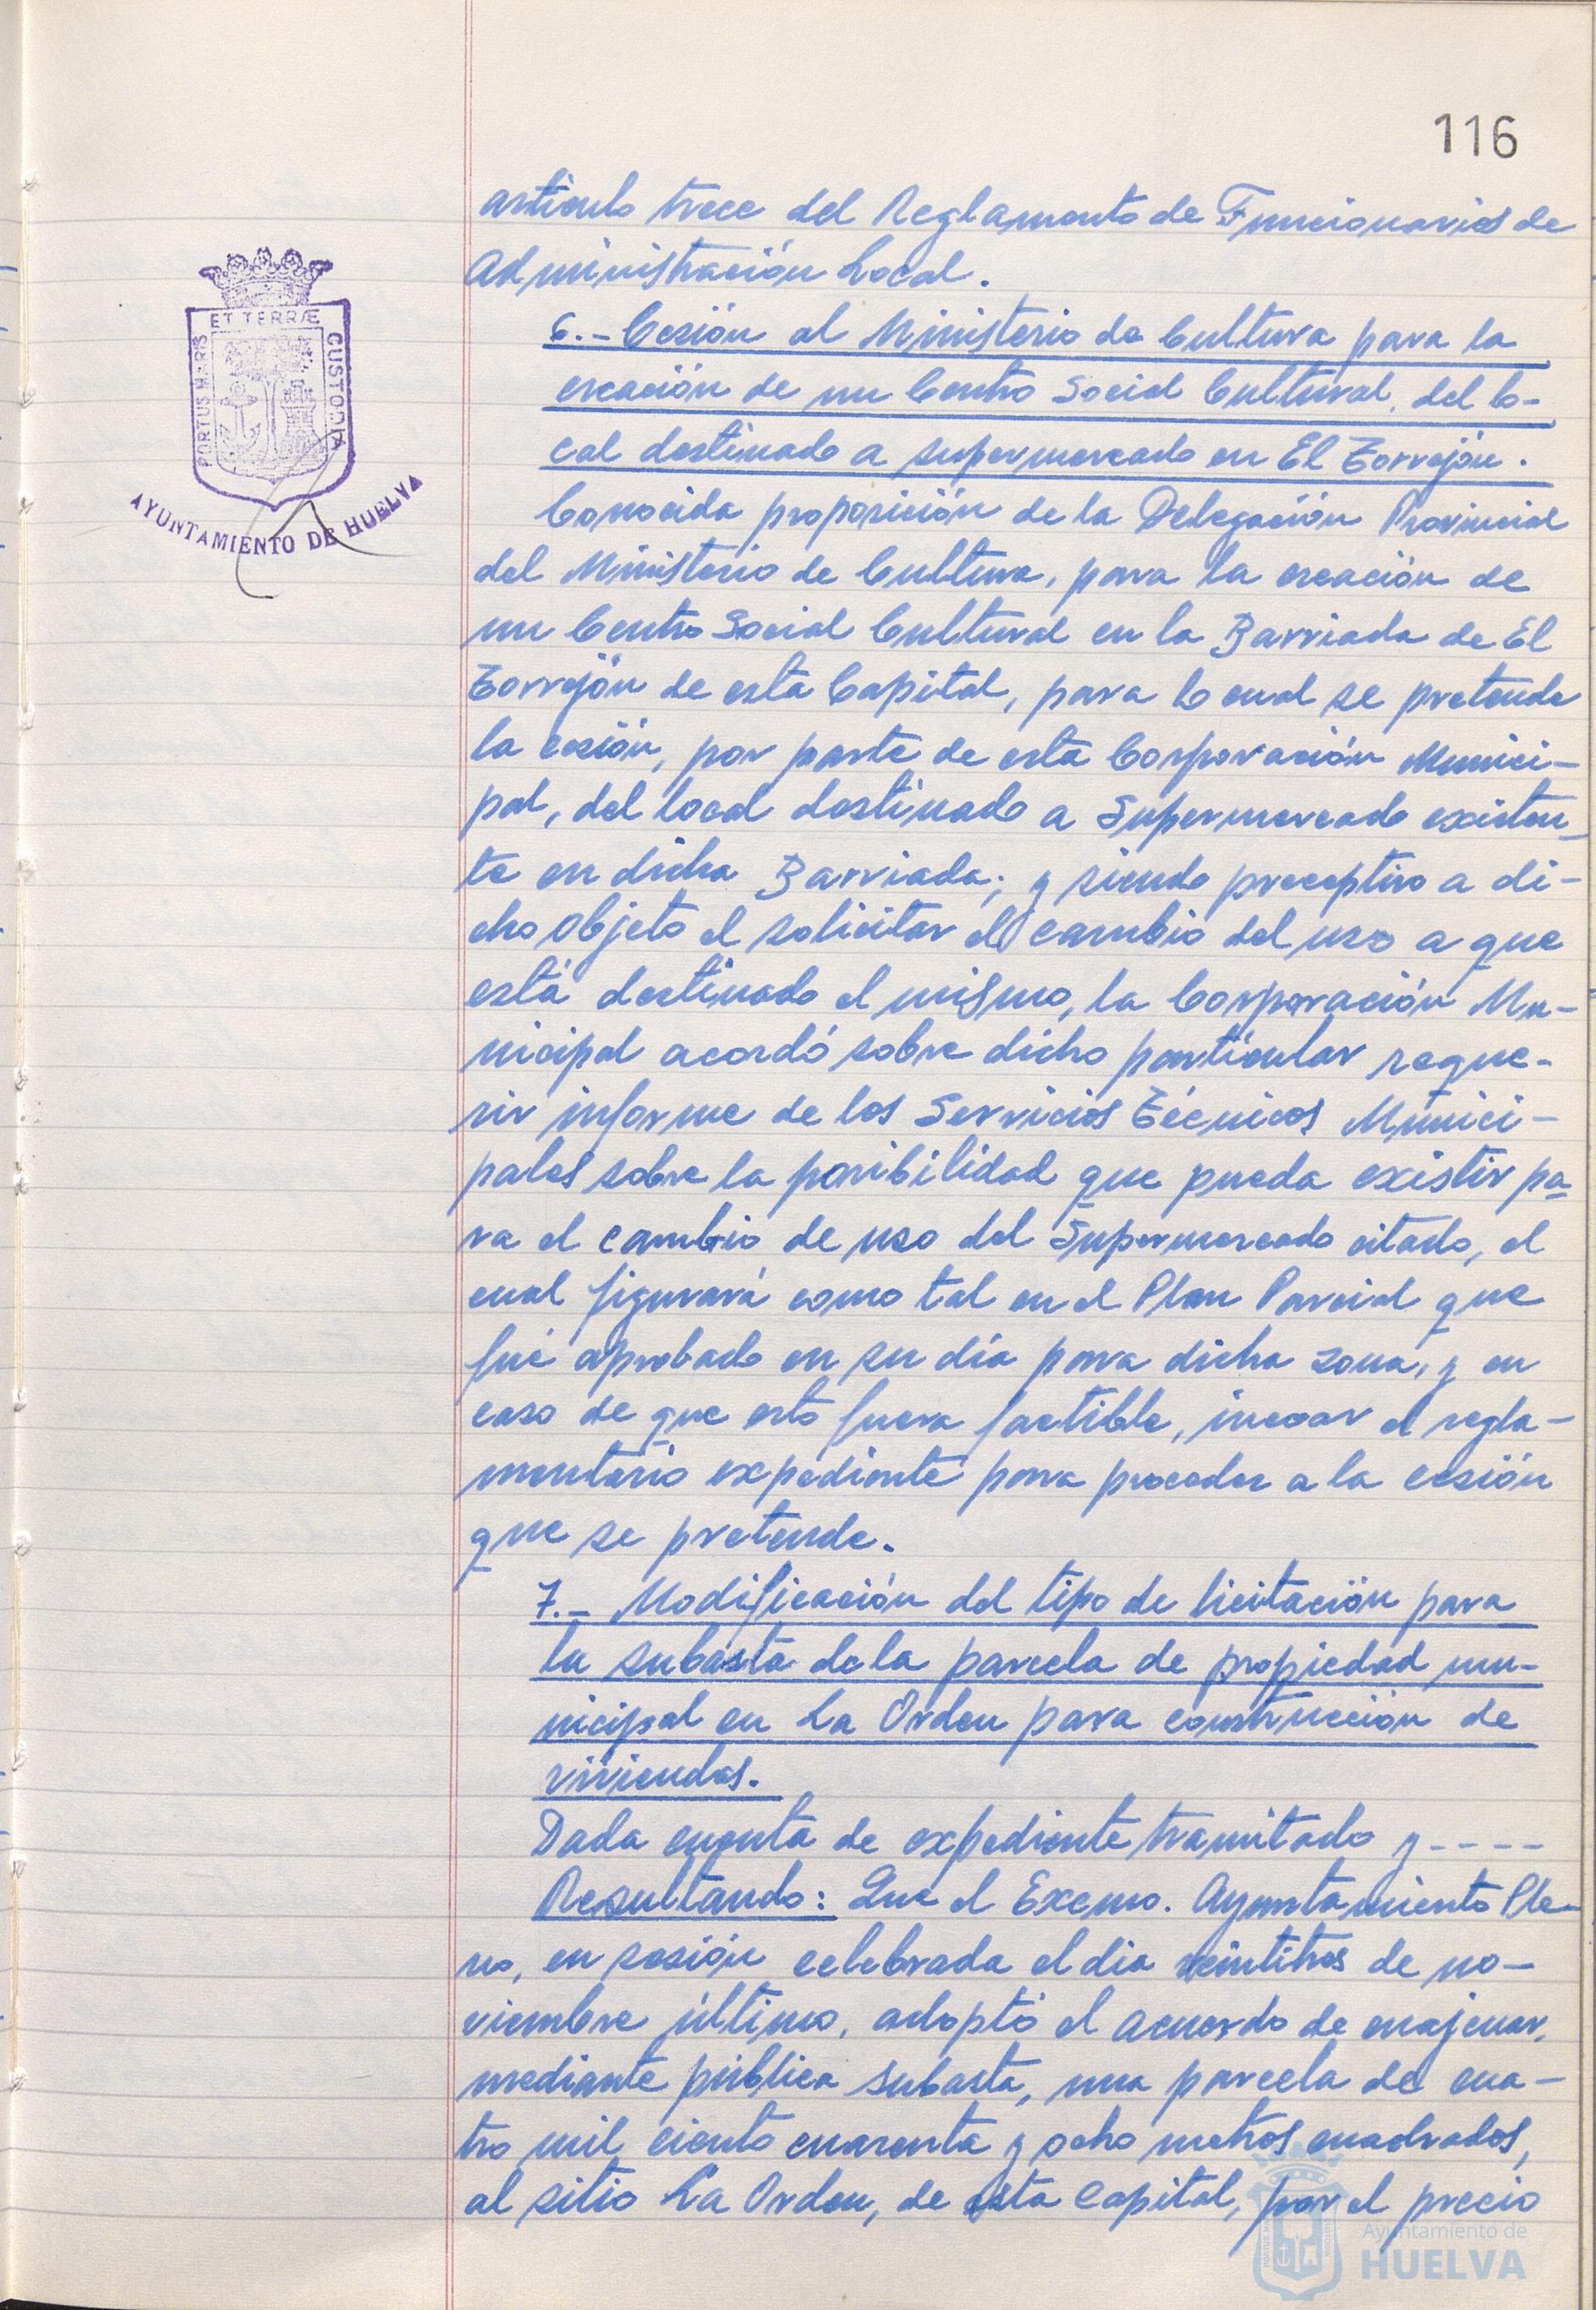 116
artículo trece del Reglamento de Funcionarios de
Administración Local.
6.- Cesión al Ministerio de Cultura para la
creación de un Centro Social Cultural, del lo-
cal destinado a supermercado en El Torrejón.
Conocida proposición de la Delegación Provincial
del Ministerio de Cultura, para la creación de
un Centro Social Cultural en la Barriada de El
Torrejón de esta Capital, para lo cual se pretende
la cesión, por parte de esta Corporación Munici-
pal, del local destinado a Supermercado existen-
te en dicha Barriada; y siendo preceptivo a di-
cho objeto el solicitar el cambio del uso a que
está destinado el mismo, la Corporación Mu-
nicipal acordó sobre dicho particular reque-
rir informe de los Servicios Técnicos Munici-
pales sobre la posibilidad que pueda existir pa-
ra el cambio de uso del Supermercado citado, el
cual figurará como tal en el Plan Parcial que
fué aprobado en su día para dicha zona, y en
caso de que esto fuera factible, incoar el regla-
mentario expediente para proceder a la cesión
que se pretende.
7.- Modificación del tipo de licitación para
la subasta de la parcela de propiedad mu-
nicipal en La Orden para construcción de
viviendas.
Dada cuenta de expediente tramitado y ----
Resultando: Que el Excmo. Ayuntamiento Ple-
no, en sesión celebrada el día veintitres de no-
viembre último, adoptó el acuerdo de enajenar,
mediante pública subasta, una parcela de cua-
tro mil ciento cuarenta y ocho metros cuadrados,
al sitio La Orden, de esta Capital, por el precio
PORTUS MARIS
ET TERRÆ
CUSTODIA
AYUNTAMIENTO DE HUELVA
Ayuntamiento de
HUELVA